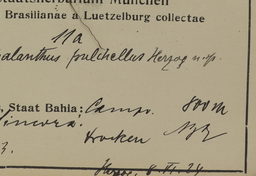 Staatsherbarium München
Brasilianae a Luetzelburg collectae
11a
alanthus pulchellus Herzog n. sp.
, Staat Bahia: Campo. 800 m
Sincorá:
trocken
3.
Herzog